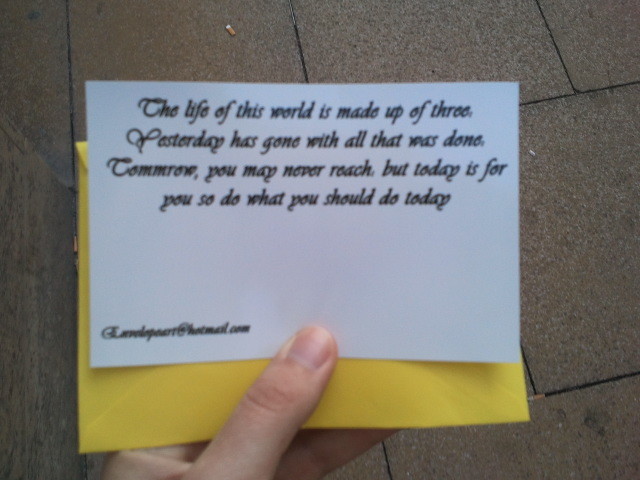 The life of this world is made up of three.
Yesterday has gone with all that was done.
Tommrow, you may never reach. but today is for
you so do what you should do today
Envelopeart@hotmail.com